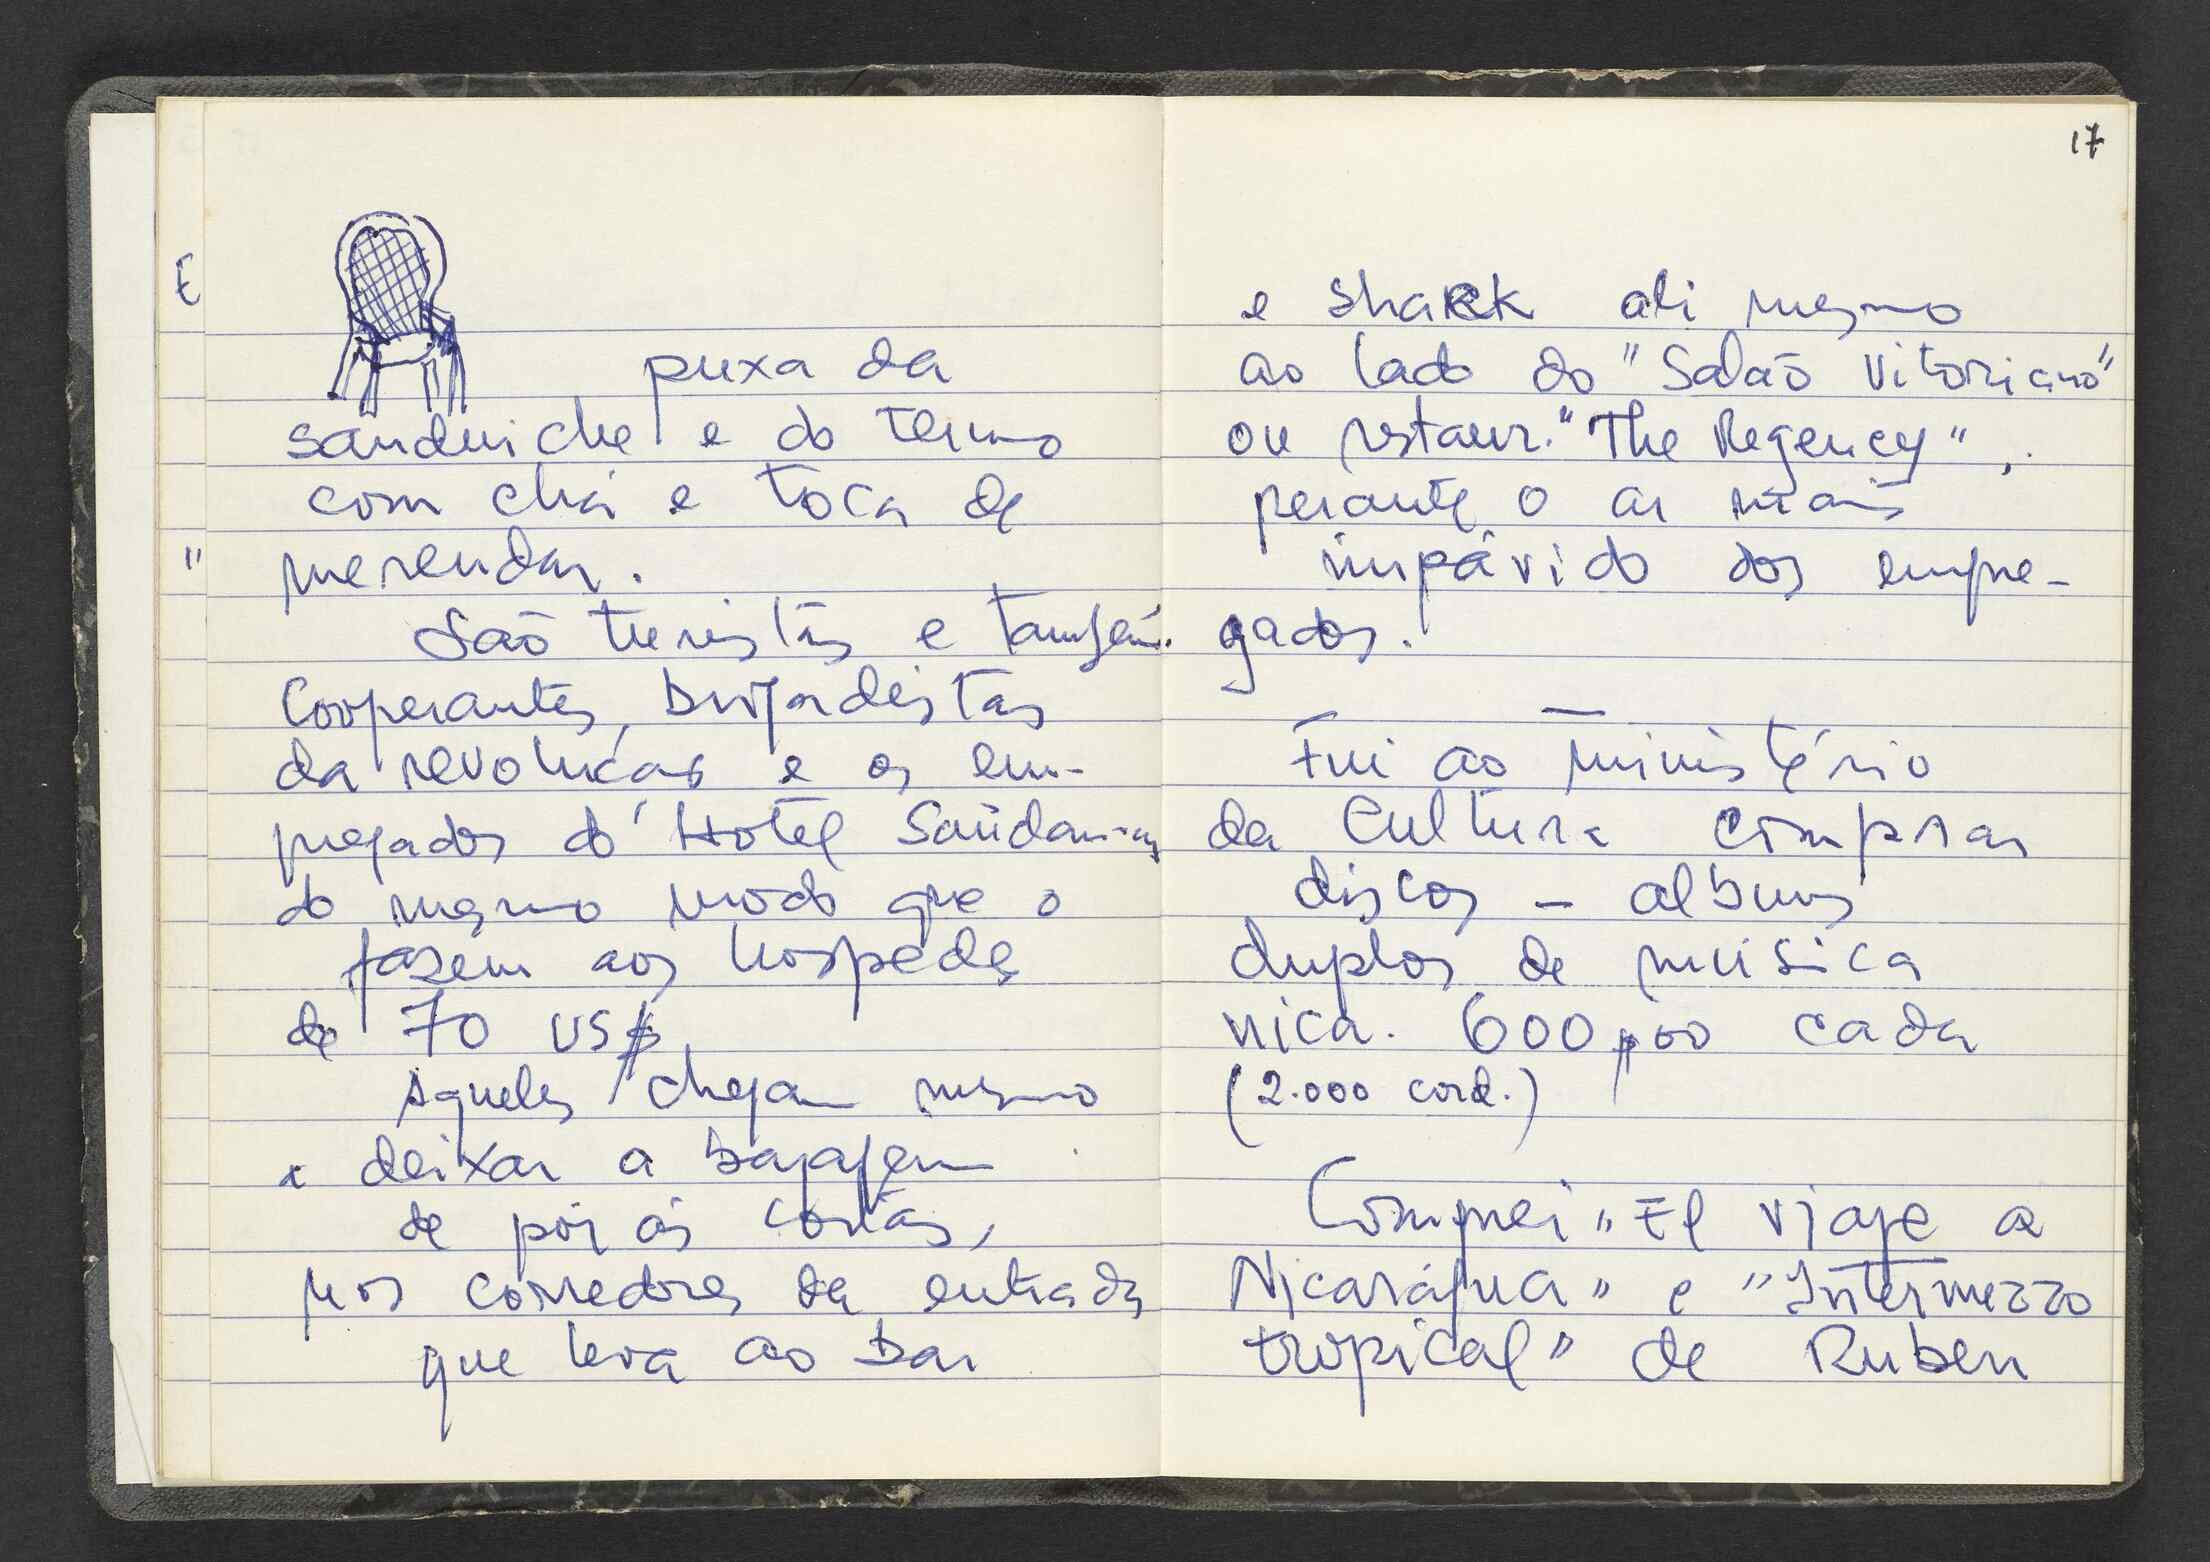 E
"
puxa da
sanduiche e do termo
com chá e toca de
merendar.
São turistas e também
Cooperantes, brigadistas
da revolução e os em-
pregados do Hotel Saúdam-os
do mesmo modo que o
fazem aos hospedes
de 70 US$
Aqueles chegam mesmo
a deixar a bagagem
de pôr às costas,
nos corredores da entrada
que leva ao bar
17
e shark ali mesmo
ao lado do "Salão Vitoriano"
ou restaur. "The Regency",
perante o ar mais
impávido dos empre-
gados.
—
Fui ao Ministério
da Cultura comprar
discos - albuns
duplos de música
nica. 600$00 cada
(2.000 cord.)
Comprei "El viaje a
Nicarágua" e "Intermezzo
tropical" de Ruben